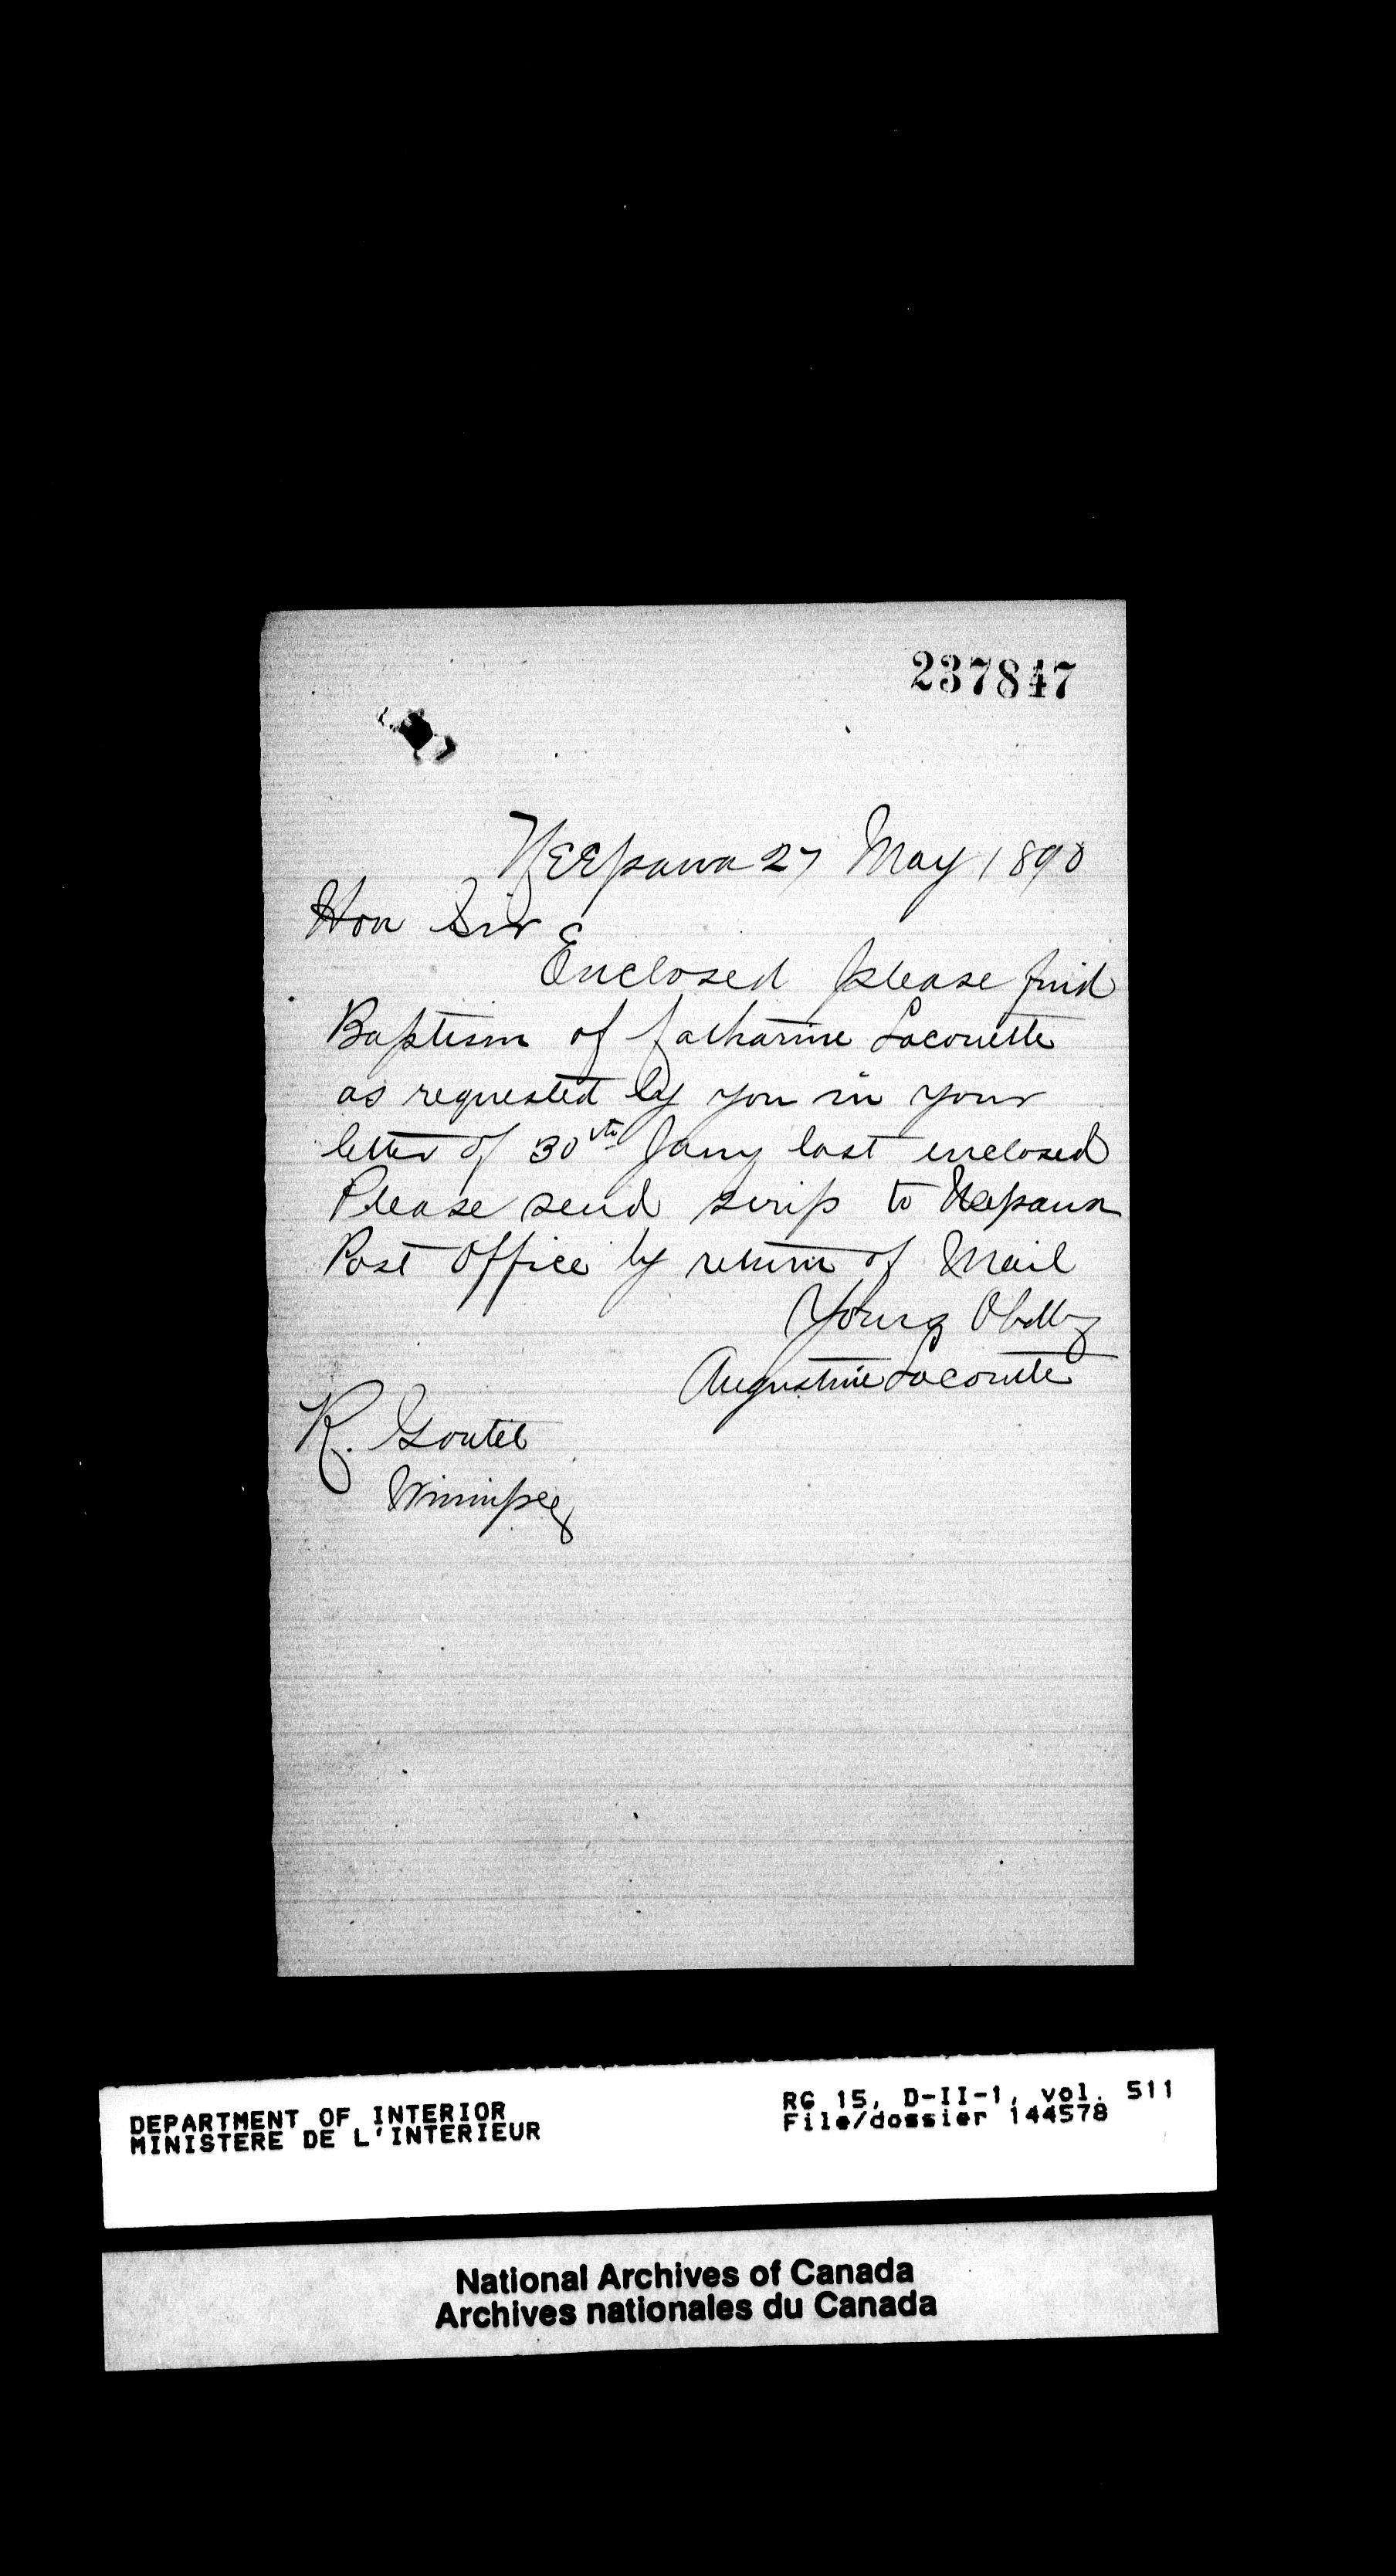 237847
Neepawa 27 May 1890
Hon Sir
Enclosed please find
Baptism of Catharine Lacouette
as requested by you in your
letter of 30th Jany last enclosed
Please send scrip to Neepawa
Post Office by return of Mail
Yours Obdtly
Augustine Lacouette
R. Goulet
Winnipeg
DEPARTMENT OF INTERIOR
MINISTERE DE L'INTERIEUR
RG 15, D-II-1, vol. 511
File/dossier 144578
National Archives of Canada
Archives nationales du Canada